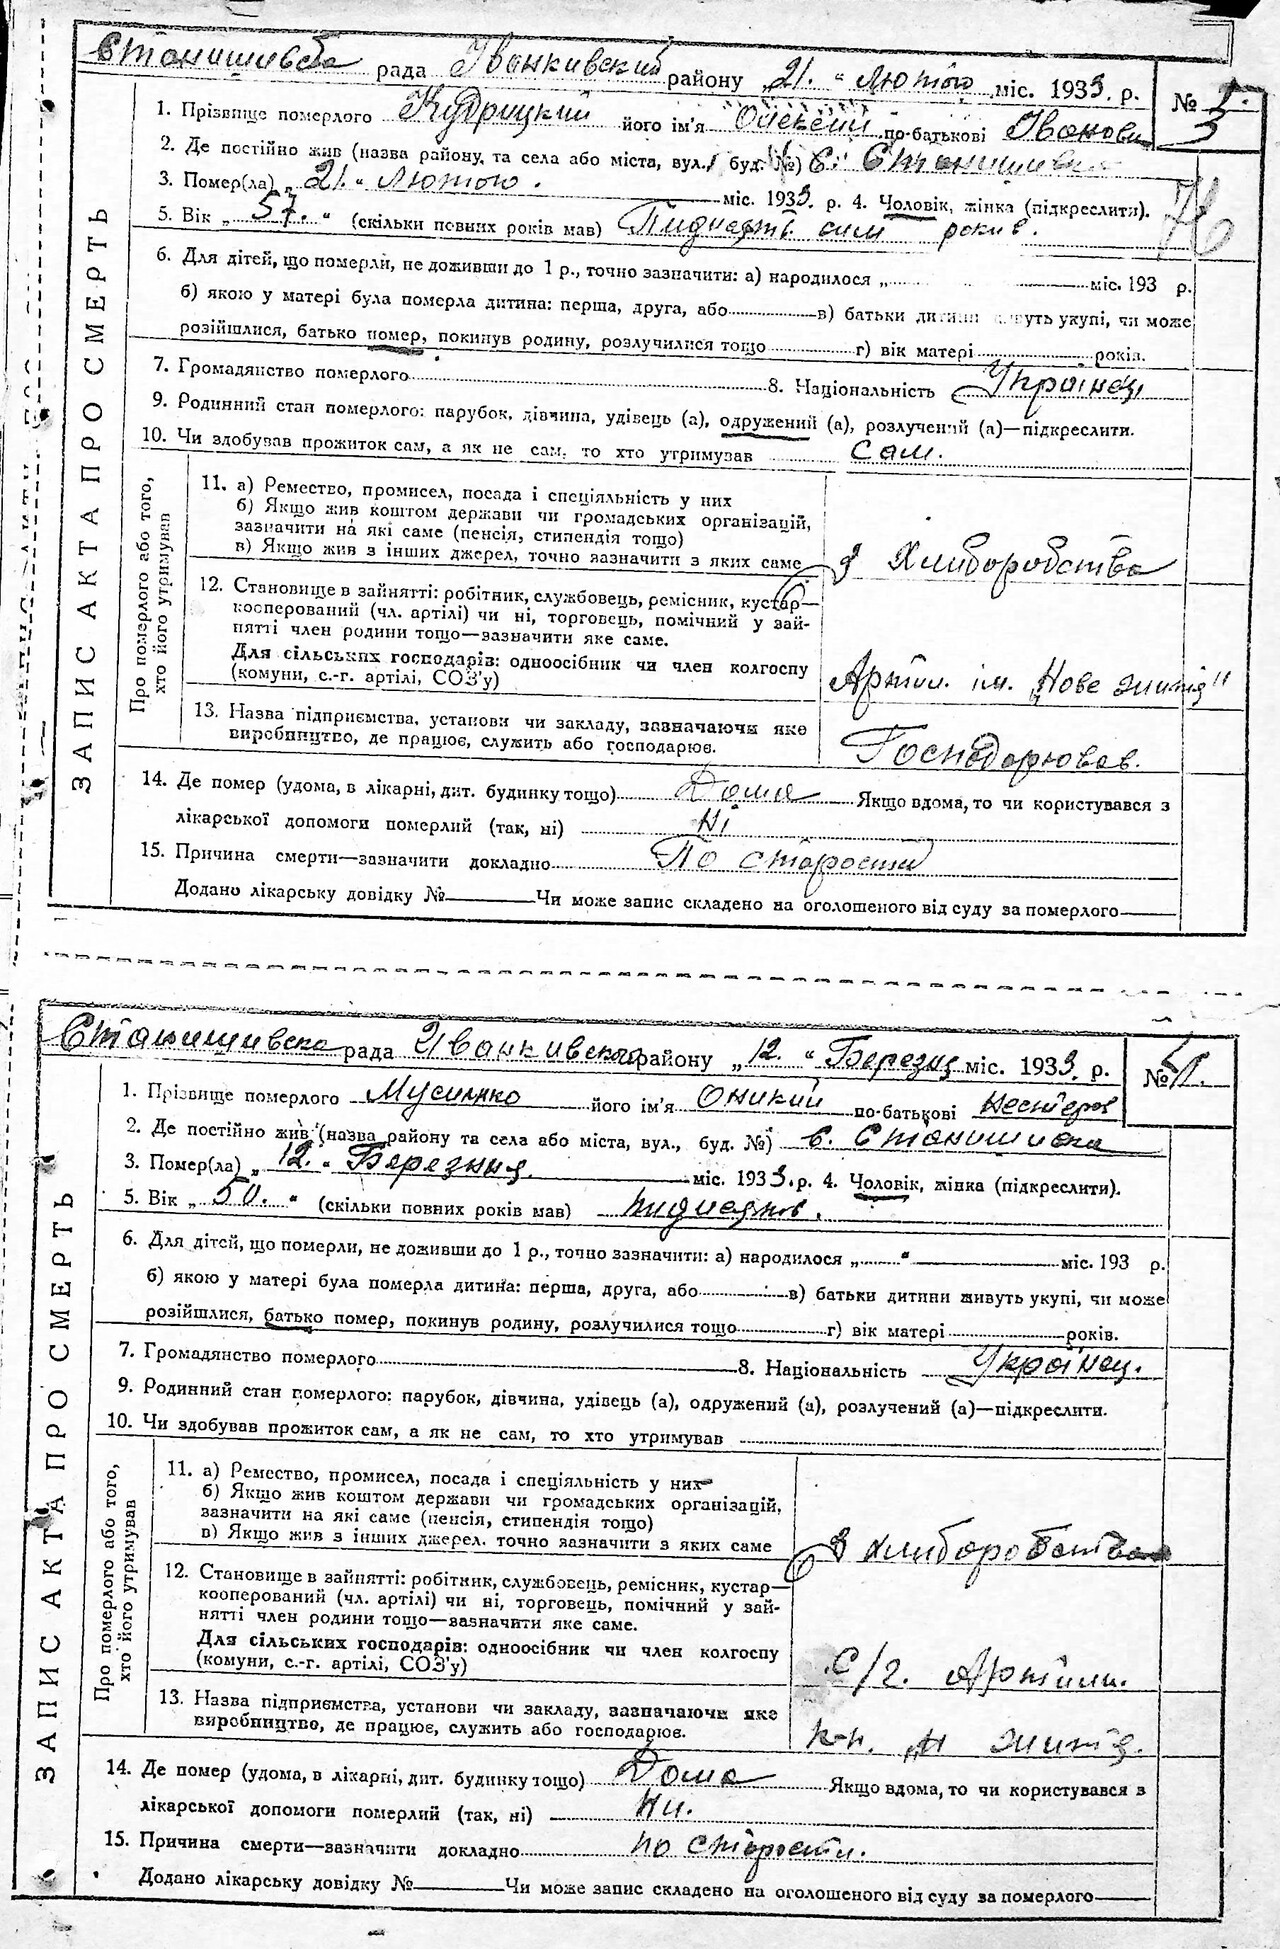 Станишивська рада Иванкивский району „21.“ Лютого міс. 1933. р. № 3
1. Прізвище померлого Кудрицкий його ім'я Олексій по-батькові Іванови
2. Де постійно жив (назва району, та села або міста, вул., буд. №) С. Станишивка
3. Помер(ла) „21.“ Лютого. міс. 1933. р. 4. Чоловік, жінка (підкреслити).
5. Вік „57.“ (скільки повних років мав) Пидисят сим рокив.
6. Для дітей, що померли, не доживши до 1 р., точно зазначити: а) народилося „ міс. 193 р.
б) якою у матері була померла дитина: перша, друга, або в) батьки дитини живуть укупі, чи може
розійшлися, батько помер, покинув родину, розлучилися тощо г) вік матері років.
7. Громадянство померлого 8. Національність Українец
9. Родинний стан померлого: парубок, дівчина, удівець (а), одружений (а), розлучений (а)—підкреслити.
10. Чи здобував прожиток сам, а як не сам, то хто утримував Сам.
ЗАПИС АКТА ПРО СМЕРТЬ
Про померлого або того, хто його утримував
11. а) Ремество, промисел, посада і спеціяльність у них
б) Якщо жив коштом держави чи громадських організацій,
зазначити на які саме (пенсія, стипендія тощо)
в) Якщо жив з інших джерел, точно зазначити з яких саме
з Хлиборобства
12. Становище в зайнятті: робітник, службовець, ремісник, кустар—
кооперований (чл. артілі) чи ні, торговець, помічний у зай-
нятті член родини тощо—зазначити яке саме.
Для сільських господарів: одноосібник чи член колгоспу
(комуни, с.-г. артілі, СОЗ'у)
Артил. ім. „Нове життя"
13. Назва підприємства, установи чи закладу, зазначаючи яке
виробництво, де працює, служить або господарює.
Господорював.
14. Де помер (удома, в лікарні, дит. будинку тощо) Дома Якщо вдома, то чи користувався з
лікарської допомоги померлий (так, ні) ні
15. Причина смерти—зазначити докладно По старости
Додано лікарську довідку № Чи може запис складено на оголошеного від суду за померлого
Станишивска рада Иванкивского району „12.“ Березня міс. 1933. р. №
1. Прізвище померлого Мусиико його ім'я Оникий по-батькові Нестеров
2. Де постійно жив (назва району та села або міста, вул., буд. №) с. Станишивка
3. Помер(ла) „12.“ Березня. міс. 1933. р. 4. Чоловік, жінка (підкреслити).
5. Вік „50.“ (скільки повних років мав) пидисятов.
6. Для дітей, що померли, не доживши до 1 р., точно зазначити: а) народилося „ “ міс. 193 р.
б) якою у матері була померла дитина: перша, друга, або в) батьки дитини живуть укупі, чи може
розійшлися, батько помер, покинув родину, розлучилися тощо г) вік матері років.
7. Громадянство померлого 8. Національність Українец.
9. Родинний стан померлого: парубок, дівчина, удівець (а), одружений (а), розлучений (а)—підкреслити.
10. Чи здобував прожиток сам, а як не сам, то хто утримував
ЗАПИС АКТА ПРО СМЕРТЬ
Про померлого або того, хто його утримував
11. а) Ремество, промисел, посада і спеціяльність у них
б) Якщо жив коштом держави чи громадських організацій,
зазначити на які саме (пенсія, стипендія тощо)
в) Якщо жив з інших джерел. точно зазначити з яких саме
з хлиборобства
12. Становище в зайнятті: робітник, службовець, ремісник, кустар—
кооперований (чл. артілі) чи ні, торговець, помічний у зай-
нятті член родини тощо—зазначити яке саме.
Для сільських господарів: одноосібник чи член колгоспу
(комуни, с.-г. артілі, СОЗ'у)
С/г. Артили.
13. Назва підприємства, установи чи закладу, зазначаючи яке
виробництво, де працює, служить або господарює.
к-п. „Н життя.
14. Де помер (удома, в лікарні, дит. будинку тощо) Дома Якщо вдома, то чи користувався з
лікарської допомоги померлий (так, ні) Ни.
15. Причина смерти—зазначити докладно по старости.
Додано лікарську довідку № Чи може запис складено на оголошеного від суду за померлого